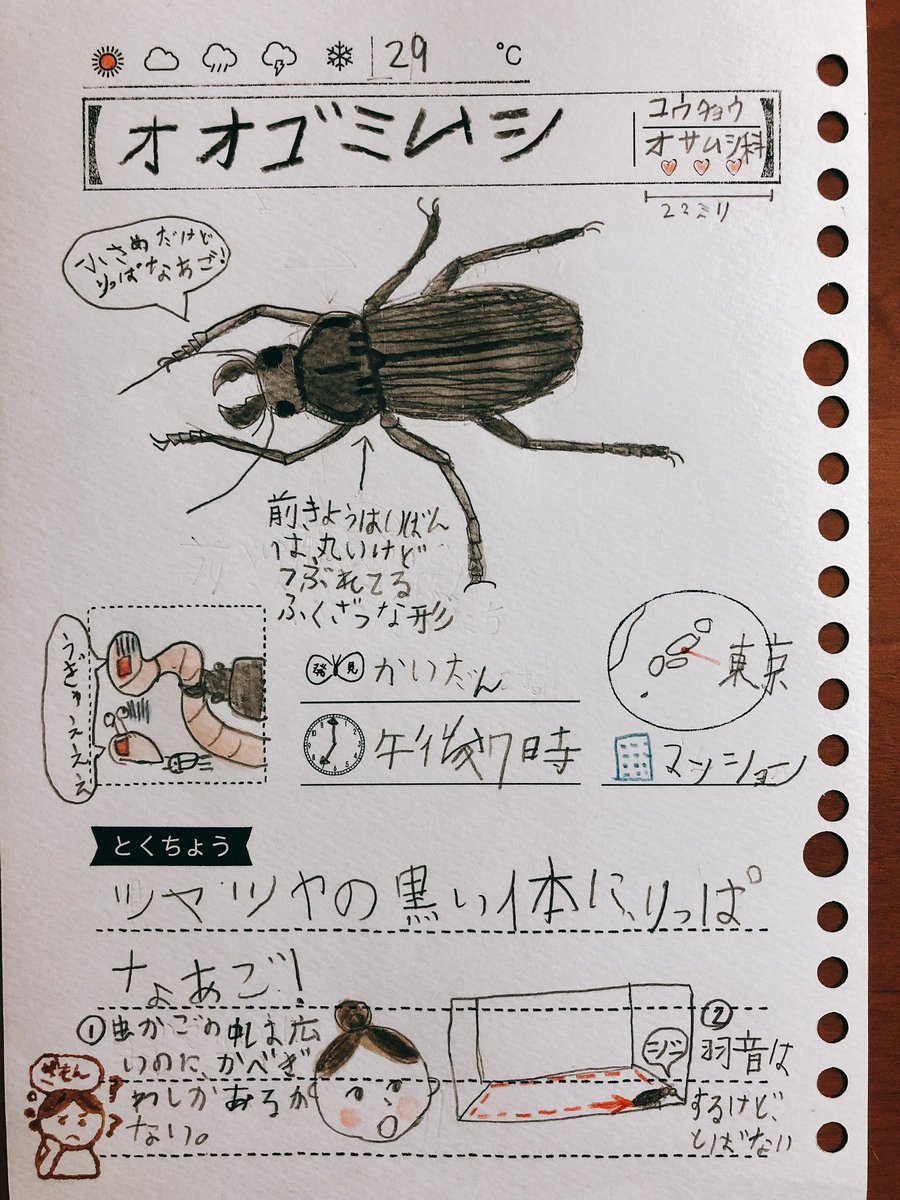 29 ℃
オオゴミムシ
コウチュウ
オサムシ科
22ミリ
小さめだけど
りっぱなあご!
前きょうはいばん
は、丸いけど
つぶれてる
ふくざつな形
うぎゅぇぇぇ
発見 かいだん
午後7時
東京
マンション
とくちょう
ツヤツヤの黒い体に、りっぱ
なあご!
① 虫かごの中は広
いのに、かべぎ
わしかあるか
ない。
ぎもん
ジジ
② 羽音は
するけど、
とばない